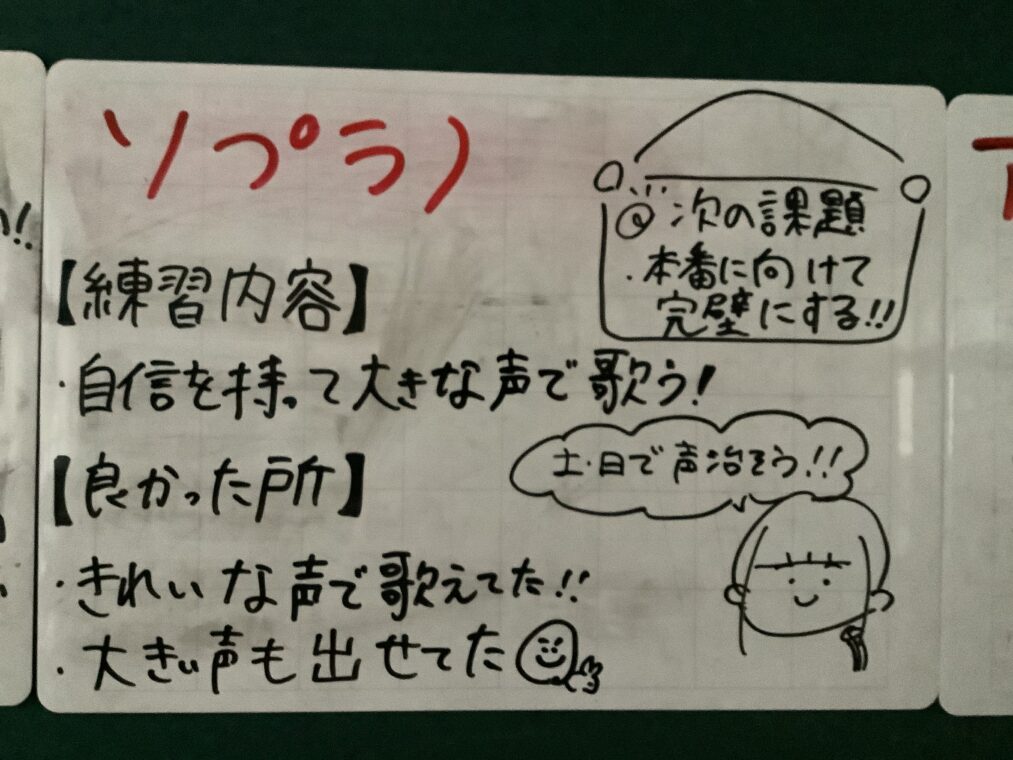 ソプラノ
【練習内容】
・自信を持って大きな声で歌う!
【良かった所】
・きれいな声で歌えてた!!
・大きい声も出せてた
◎次の課題
・本番に向けて
完璧にする!!
土・日で声治そう!!
!!